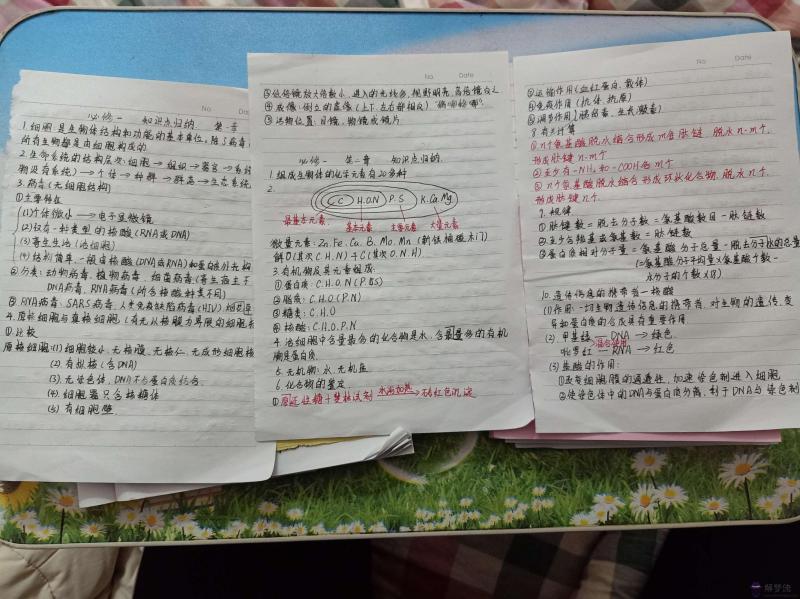 No
Date
必修一 知识点归纳 第一章
1.细胞是生物体结构和功能的基本单位。除了病毒
所有生物都是由细胞构成的.
2.生命系统的结构层次:细胞→组织→器官→系统
物没有系统)→个体→种群→群落→生态系统
3.病毒(无细胞结构)
①主要特征
(1)个体微小→电子显微镜
(2)仅有一种类型的核酸(RNA或DNA)
(3)寄生生活(活细胞)
(4)结构简单,一般由核酸(DNA或RNA)和蛋白质外壳构
②分类:动物病毒、植物病毒、细菌病毒(寄生宿主于
DNA病毒、RNA病毒(所含核酸种类不同)
③RNA病毒:SARS病毒、人类免疫缺陷病毒(HIV)
4.原核细胞与真核细胞(有无以核膜为界限的细胞核
①比较
原核细胞:(1)细胞较小,无核膜、无核仁,无成形细胞核
(2)有拟核(含DNA)
(3)无染色体,DNA不与蛋白质结合.
(4)细胞器只含核糖体
(5)有细胞壁
No.
Date
③低倍镜放大倍数小,进入的光线多,视野明亮,高倍镜反之
④成像:倒立的虚像(上下、左右都相反)
⑤污物位置:目镜、物镜或镜片
必修一 第二章 知识点归纳
1.组成生物体的化学元素有20多种
2.
C H.O.N P.S K.Ca.Mg
最基本元素
基本元素
主要元素
大量元素
微量元素:Zn、Fe、Ca、B、Mo、Mn(新铁桶碰木门)
鲜O(其次C.H.N)干C(其次O.N.H)
3.有机物及其元素组成:
①蛋白质:C.H.O.N(P.S)
②脂质:C.H.O(P.N)
③糖类:C.H.O
④核酸:C.H.O.P.N
4.活细胞中含量最多的化合物是水,含量最多的有机
物是蛋白质.
5.无机物:水、无机盐
6.化合物的鉴定
①还原性糖+斐林试剂 水浴加热→砖红色沉淀
No
Date
③运输作用(血红蛋白、载体)
④免疫作用(抗体、抗原)
⑤调节作用(胰岛素、生长激素)
8.有关计算
①n个氨基酸脱水缩合形成m条肽链,脱水n-m个,
形成肽键n-m个
②至少有-NH₂和-COOH各m个
③n个氨基酸脱水缩合形成环状化合物,脱水n个,
形成肽键n个.
9.规律
①肽键数=脱去分子数=氨基酸数目-肽链数
②至少含羧基或氨基数=肽链数
③蛋白质相对分子量=氨基酸分子总量-脱去分子水的总量
(=氨基酸分子平均量×氨基酸个数-
水分子的个数×18)
10.遗传信息的携带者—核酸
(1)作用:一切生物遗传信息的携带者,对生物的遗传、变
异和蛋白质的合成具有重要作用
(2).甲基绿—DNA→绿色
混合使用
吡罗红—RNA→红色
(3)盐酸的作用:
①改变细胞膜的通透性,加速染色剂进入细胞
②使染色体中的DNA与蛋白质分离,利于DNA与染色剂
解梦佬